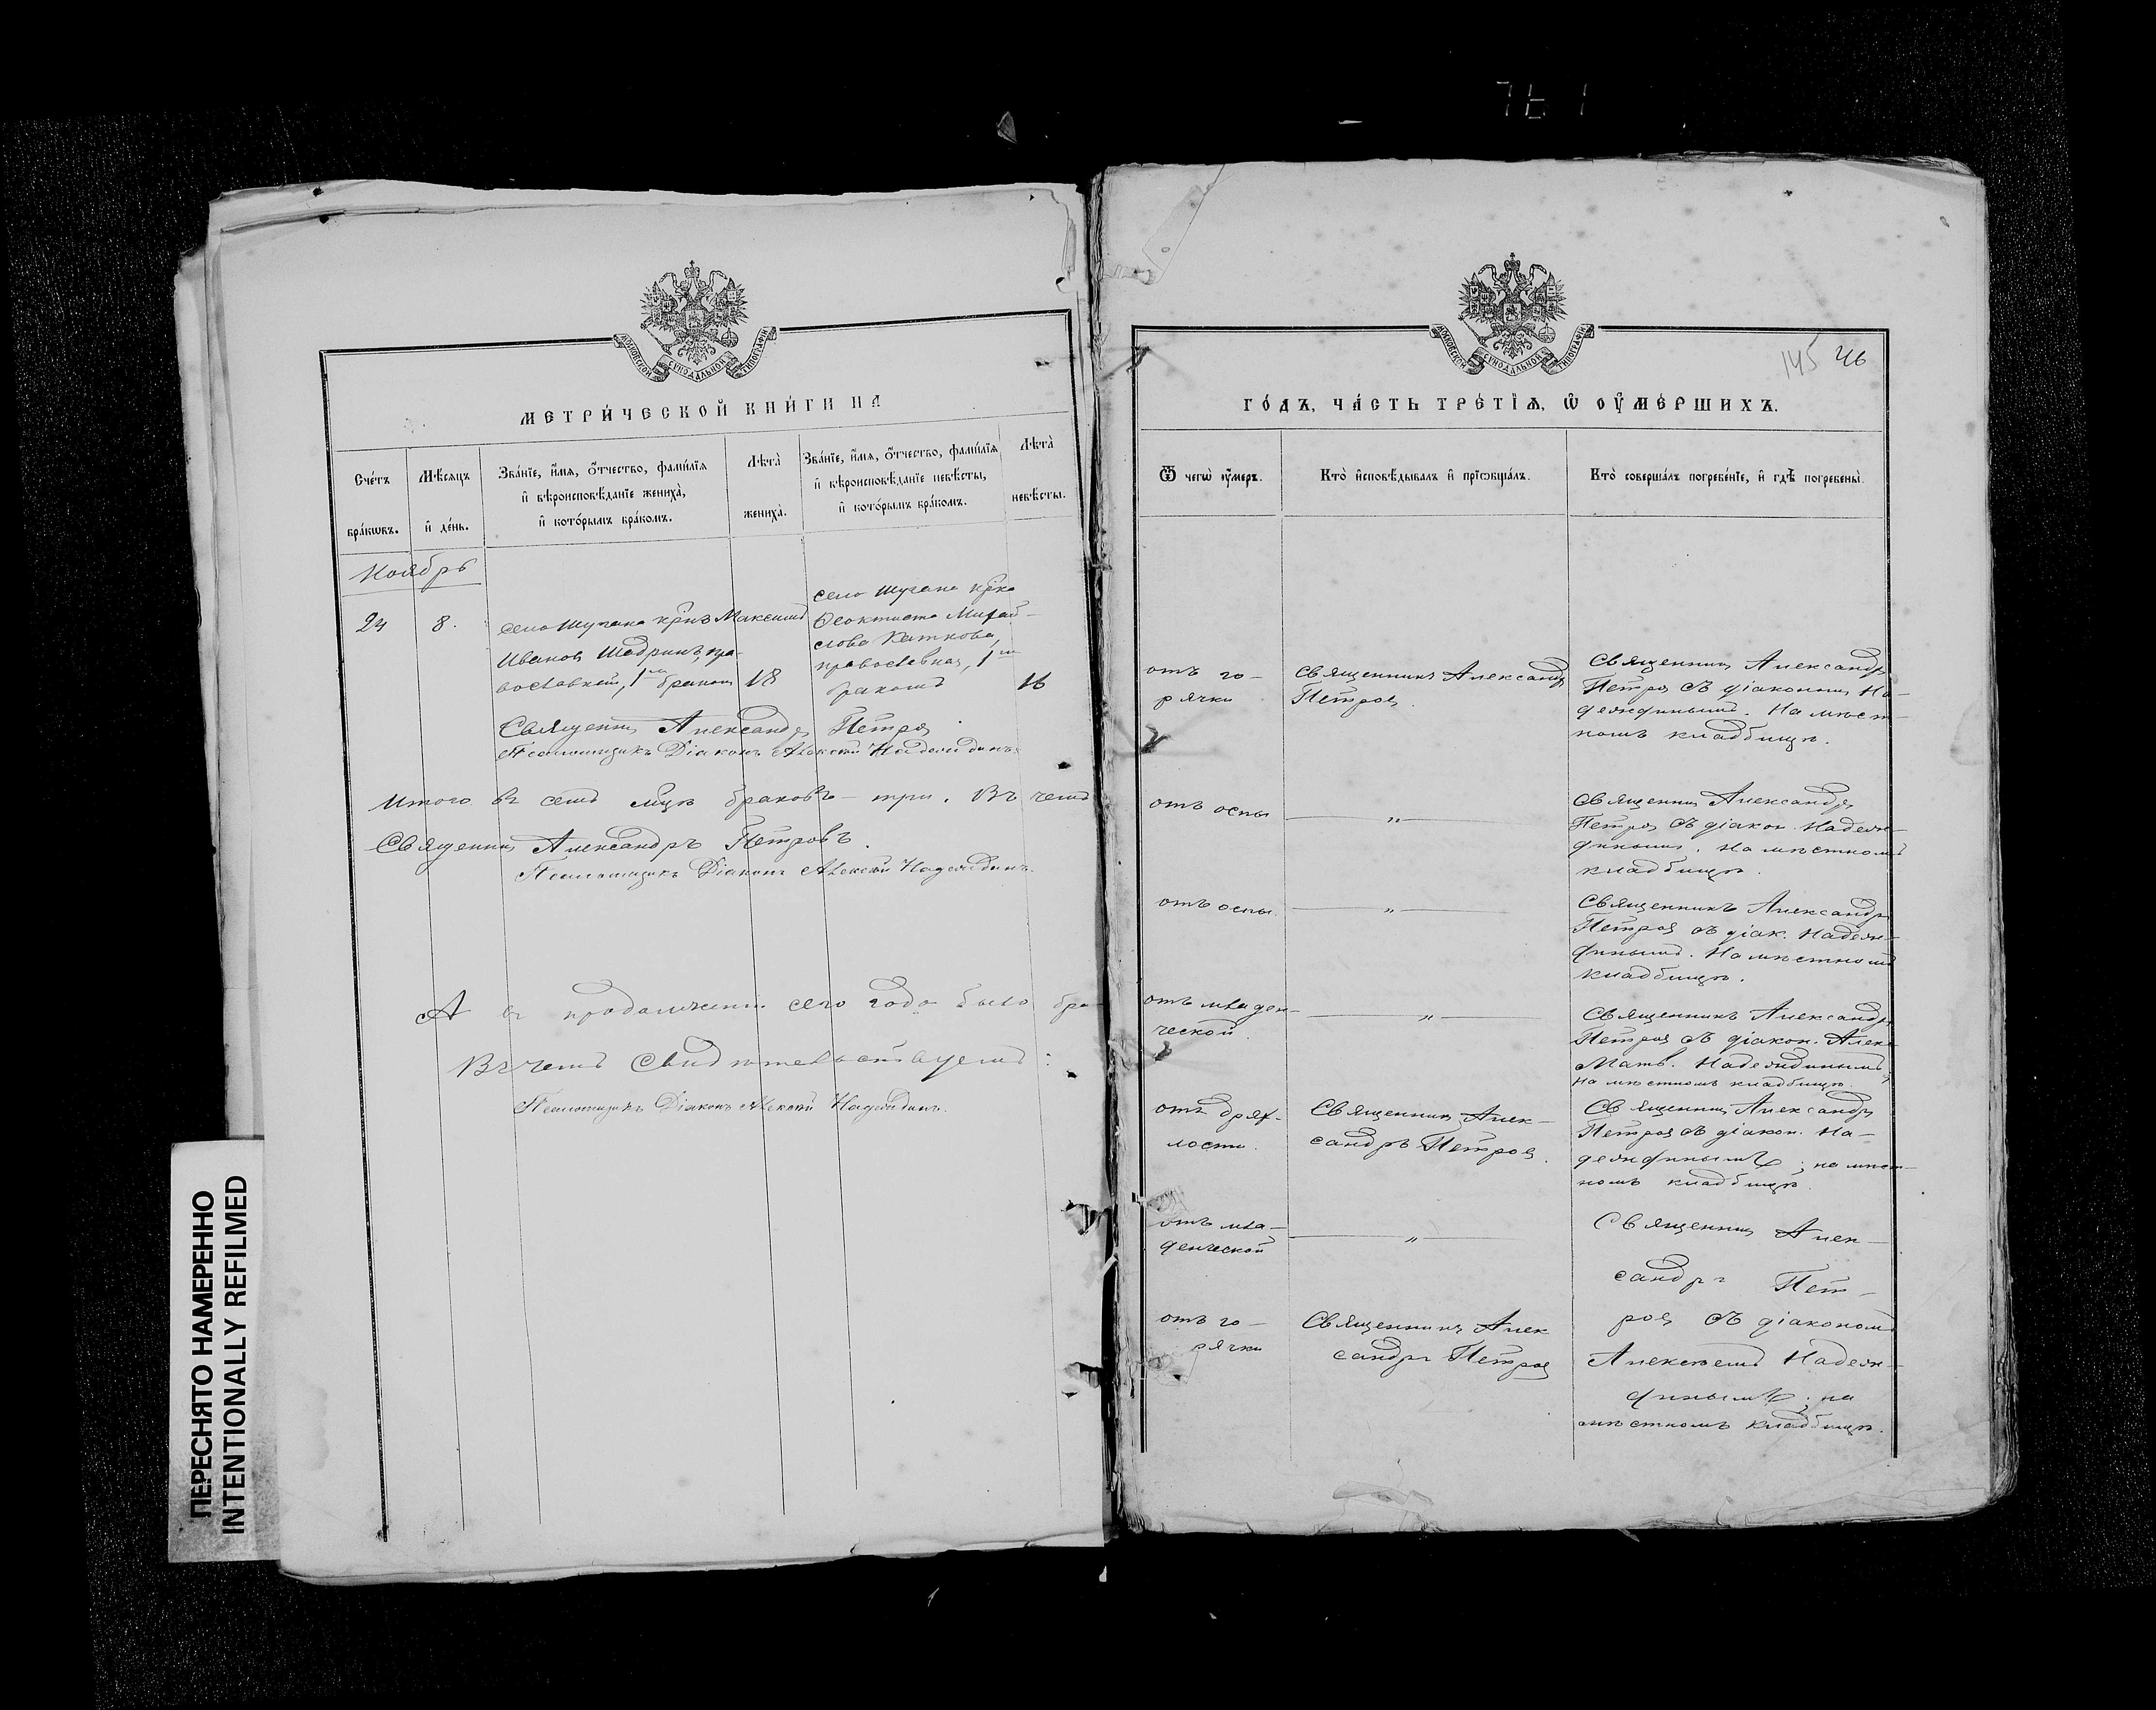 МОСКОВСКОЙ СѴНОДАЛЬНОЙ ТИПОГРАФІИ
МЕТРИ́ЧЕСКОЙ КНИ́ГИ НА
Сче́тъ бра́кѡвъ.
Мѣ́сяцъ и де́нь.
Зва́нїе, и҆́мя, ѻ҆́тчество, фами́лїя
и҆ вѣроисповѣ́данїе жениха̀,
и҆ кото́рымъ бра́комъ.
Лѣта̀ жениха̀.
Зва́нїе, и҆́мя, ѻ҆́тчество, фами́лїя
и҆ вѣроисповѣ́данїе невѣ́сты,
и҆ кото́рымъ бра́комъ.
Лѣта̀ невѣ́сты.
Ноябрь
24
8.
село Шугана крнъ Максимъ
Иванов Шадринъ, пра-
вославный, 1мъ браком
18
село Шугана
Феоктиста
слова Каткова,
православная, 1мъ
бракомъ
16
Священник Александръ Петров
Псаломщикъ Діаконъ Алексѣй Надеждинъ
Итого въ семъ мцѣ браковъ – три. Въ чемъ
Священник Александръ Петровъ.
Псаломщикъ Діаконъ Алексѣй Надеждинъ.
А въ продолженіи сего года было бра
Въ чемъ свидѣтельствуемъ:
Псаломщикъ Діаконъ Алексѣй Надеждинъ.
ПЕРЕСНЯТО НАМЕРЕННО
INTENTIONALLY REFILMED
МОСКОВСКОЙ СѴНОДАЛЬНОЙ ТИПОГРАФІИ
145 46
ГО́ДЪ, ЧА́СТЬ ТРЕ́ТЇЯ, Ѡ҆ ОУ҆МЕ́РШИХЪ.
Ѿ чегѡ̀ ᲂу҆́меръ.
Кто̀ и҆сповѣ́дывалъ и҆ прїѡбща́лъ.
Кто̀ соверша́лъ погребе́нїе, и҆ гдѣ̀ погребены̀.
отъ го-
рячки
Священникъ Александръ
Петров.
Священник Александръ
Петров съ діакономъ На-
деждинымъ. На мѣст-
номъ кладбищѣ.
отъ оспы
„
Священник Александръ
Петров съ діакон. Надеж-
динымъ. На мѣстномъ
кладбищѣ.
отъ оспы.
„
Священникъ Александръ
Петров съ діак. Надеж-
динымъ. На мѣстномъ
кладбищѣ.
отъ младен-
ческой.
„
Священникъ Александръ
Петров съ діакон. Алекс
Матв. Надеждинымъ,
на мѣстномъ кладбищѣ.
отъ дрях-
лости.
Священник Алек-
сандръ Петров.
Священник Александръ
Петров съ діакон. На-
деждинымъ; на мѣст-
номъ кладбищѣ.
отъ мла-
денческой
„
Священник Алек-
сандръ Пет-
ров съ діакономъ
Алексѣемъ Надеж-
динымъ; на
мѣстномъ кладбищѣ.
отъ го-
рячки
Священникъ Алек
сандръ Петров